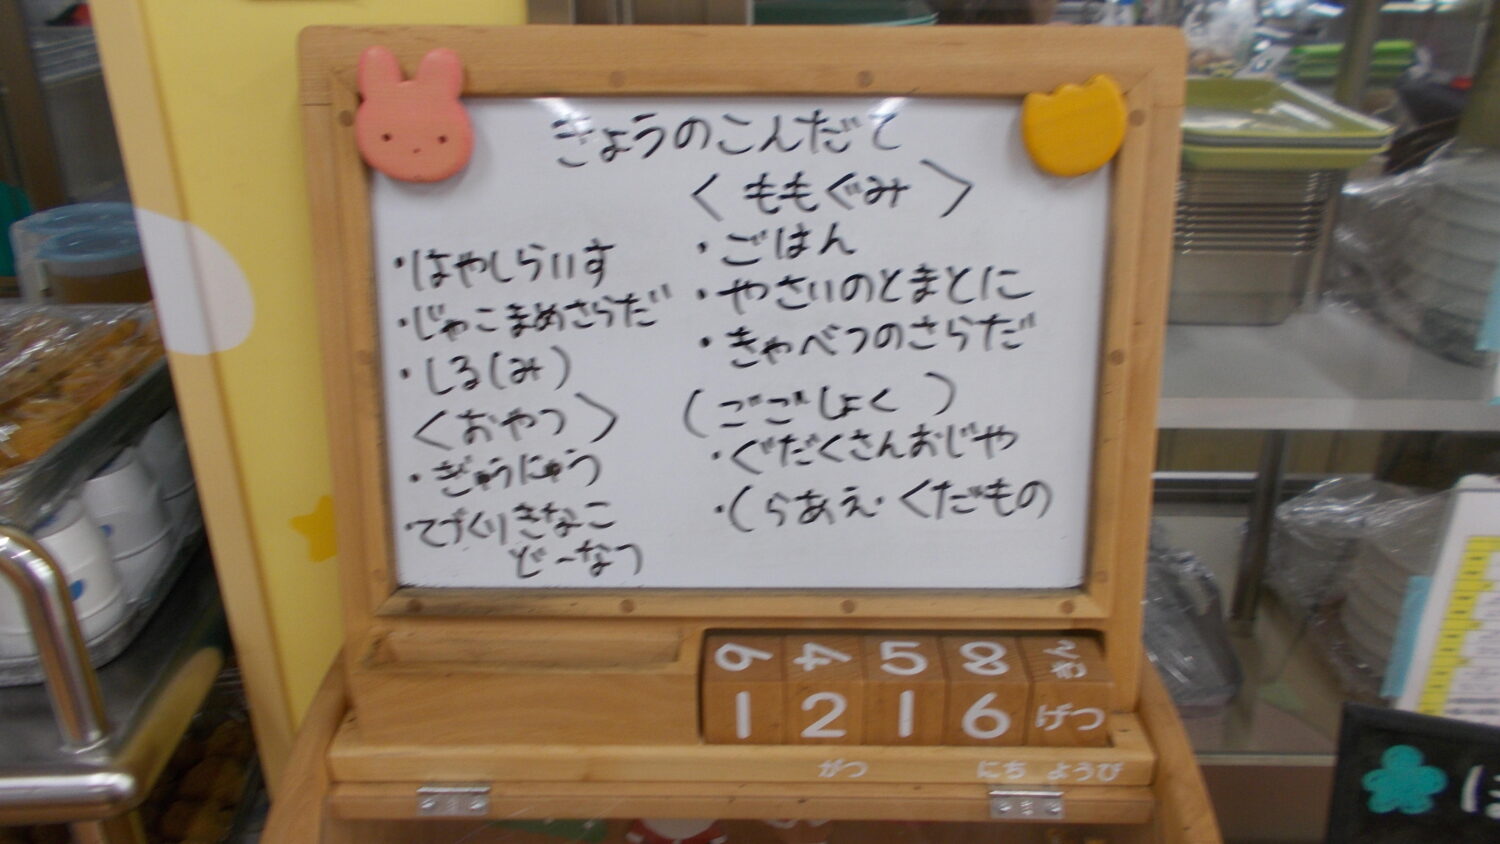 きょうのこんだて
・はやしらいす
・じゃこまめさらだ
・しる(み)
<おやつ>
・ぎゅうにゅう
・てづくりきなこ
どーなつ
<ももぐみ>
・ごはん
・やさいのとまとに
・きゃべつのさらだ
(ごごしょく)
・ぐだくさんおじや
・(らあえ・くだもの
6 4 5 8 きん
1 2 1 6 げつ
がつ にち ようび